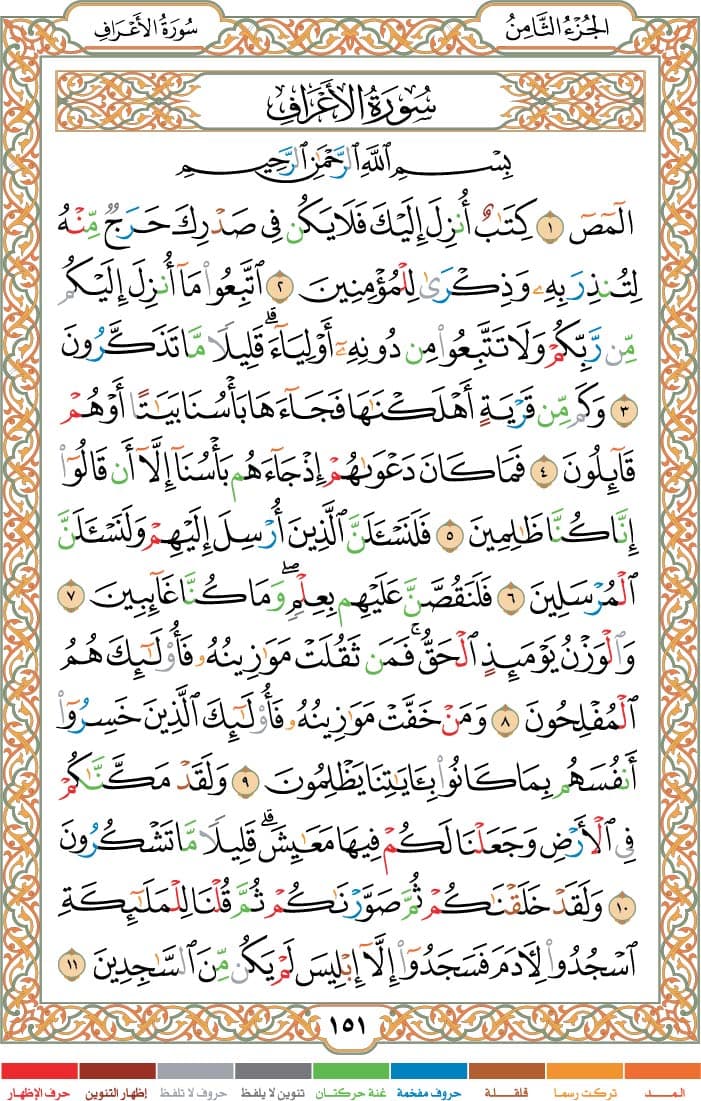 الجُزْءُ الثَّامِنُ
سُورَةُ الأَعْرَافِ
سُورَةُ الأَعْرَافِ
بِسْمِ ٱللَّهِ ٱلرَّحْمَٰنِ ٱلرَّحِيمِ
الٓمٓصٓ ١ كِتَٰبٌ أُنزِلَ إِلَيْكَ فَلَا يَكُن فِى صَدْرِكَ حَرَجٌ مِّنْهُ
لِتُنذِرَ بِهِۦ وَذِكْرَىٰ لِلْمُؤْمِنِينَ ٢ ٱتَّبِعُوا۟ مَآ أُنزِلَ إِلَيْكُم
مِّن رَّبِّكُمْ وَلَا تَتَّبِعُوا۟ مِن دُونِهِۦٓ أَوْلِيَآءَ ۗ قَلِيلًا مَّا تَذَكَّرُونَ
٣ وَكَم مِّن قَرْيَةٍ أَهْلَكْنَٰهَا فَجَآءَهَا بَأْسُنَا بَيَٰتًا أَوْ هُمْ
قَآئِلُونَ ٤ فَمَا كَانَ دَعْوَىٰهُمْ إِذْ جَآءَهُم بَأْسُنَآ إِلَّآ أَن قَالُوٓا۟
إِنَّا كُنَّا ظَٰلِمِينَ ٥ فَلَنَسْـَٔلَنَّ ٱلَّذِينَ أُرْسِلَ إِلَيْهِمْ وَلَنَسْـَٔلَنَّ
ٱلْمُرْسَلِينَ ٦ فَلَنَقُصَّنَّ عَلَيْهِم بِعِلْمٍ ۖ وَمَا كُنَّا غَآئِبِينَ ٧
وَٱلْوَزْنُ يَوْمَئِذٍ ٱلْحَقُّ ۚ فَمَن ثَقُلَتْ مَوَٰزِينُهُۥ فَأُو۟لَٰٓئِكَ هُمُ
ٱلْمُفْلِحُونَ ٨ وَمَنْ خَفَّتْ مَوَٰزِينُهُۥ فَأُو۟لَٰٓئِكَ ٱلَّذِينَ خَسِرُوٓا۟
أَنفُسَهُم بِمَا كَانُوا۟ بِـَٔايَٰتِنَا يَظْلِمُونَ ٩ وَلَقَدْ مَكَّنَّٰكُمْ
فِى ٱلْأَرْضِ وَجَعَلْنَا لَكُمْ فِيهَا مَعَٰيِشَ ۗ قَلِيلًا مَّا تَشْكُرُونَ
١٠ وَلَقَدْ خَلَقْنَٰكُمْ ثُمَّ صَوَّرْنَٰكُمْ ثُمَّ قُلْنَا لِلْمَلَٰٓئِكَةِ
ٱسْجُدُوا۟ لِـَٔادَمَ فَسَجَدُوٓا۟ إِلَّآ إِبْلِيسَ لَمْ يَكُن مِّنَ ٱلسَّٰجِدِينَ ١١
١٥١
المــد تركت رسما قلقـلة حروف مفخمة غنة حركتان تنوين لا يلفظ حروف لا تلفظ إظهار التنوين حرف الإظهار